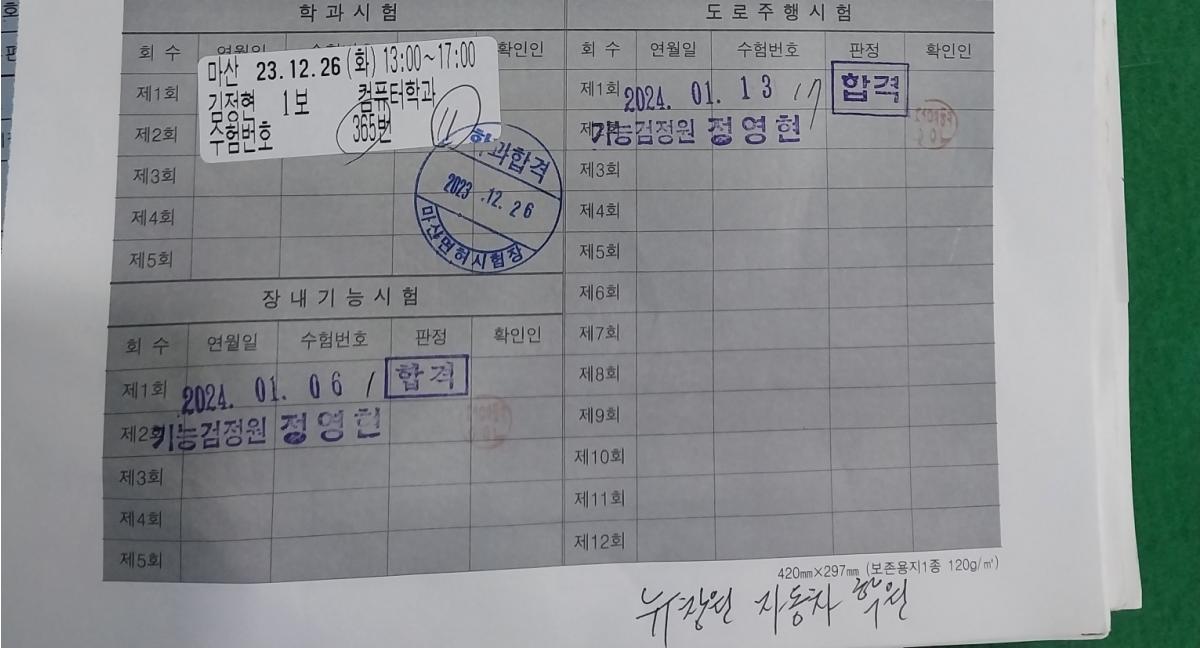 호
편
학과시험
회 수 연월일 수험번호 확인인
마산 23.12.26(화) 13:00~17:00
김정현 1보 컴퓨터학과
수험번호 365번
11
제1회
제2회
제3회
제4회
제5회
학과합격
2023.12.26
마산면허시험장
장내기능시험
회 수 연월일 수험번호 판정 확인인
제1회 2024. 01. 06 / 합격
제2회 기능검정원 정영현
제3회
제4회
제5회
도로주행시험
회 수 연월일 수험번호 판정 확인인
제1회 2024. 01. 13 합격
기능검정원 정영현
제3회
제4회
제5회
제6회
제7회
제8회
제9회
제10회
제11회
제12회
420㎜×297㎜ (보존용지1종 120g/㎡)
뉴창원 자동차 학원